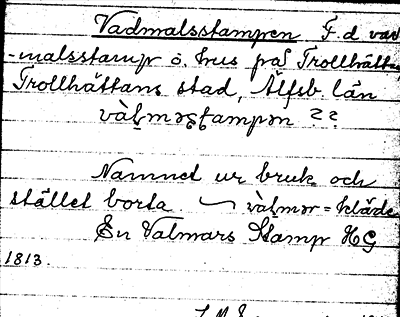 Vadmalsstampen F. d vad
-malsstamp o. hus på Trollhätta
Trollhättans stad, Älfsb. län
vàḷməsṭampən ??
Namnet ur bruk och
stället borta ~ vàḷmər = kläde
En Valmars Stamp HG
1813.